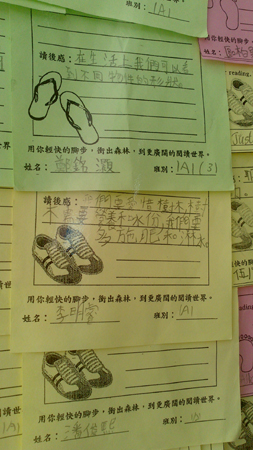 班別：1A1
讀後感：在生活上我們可以看
到不同物件的形狀。
用你輕快的腳步，衝出森林，到更廣闊的閱讀世界。
姓名：鄭錦灝 班別：1A1(3)
讀後感：我們要珍惜樹林，樹
木需要營養和水份，我們要
多施肥和淋水。
用你輕快的腳步，衝出森林，到更廣闊的閱讀世界。
姓名：李明富 班別：1A1
用你輕快的腳步，衝出森林，到更廣闊的閱讀世界。
姓名：潘俊熙 班別：
reading.
Just